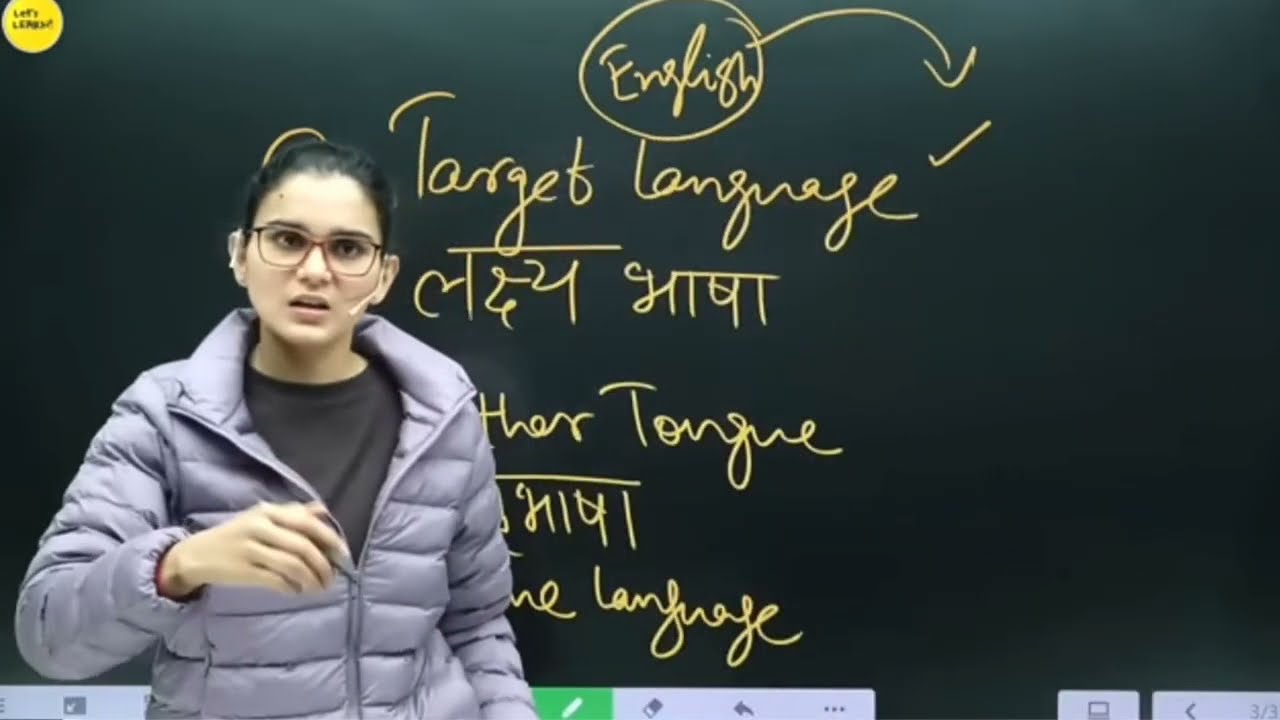 Let's
LEARN!
English
Target Language
लक्ष्य भाषा
Tongue
भाषा
Language
3/3